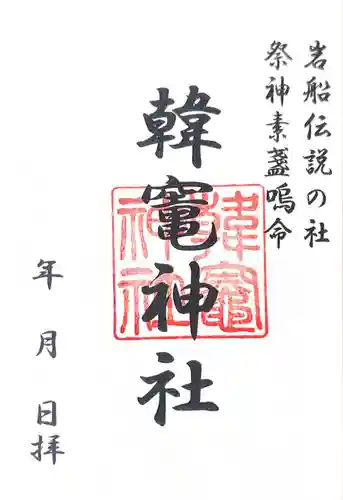 岩船伝説の社
祭神素盞嗚命
韓竈神社
韓竈神社
年　月　日拝